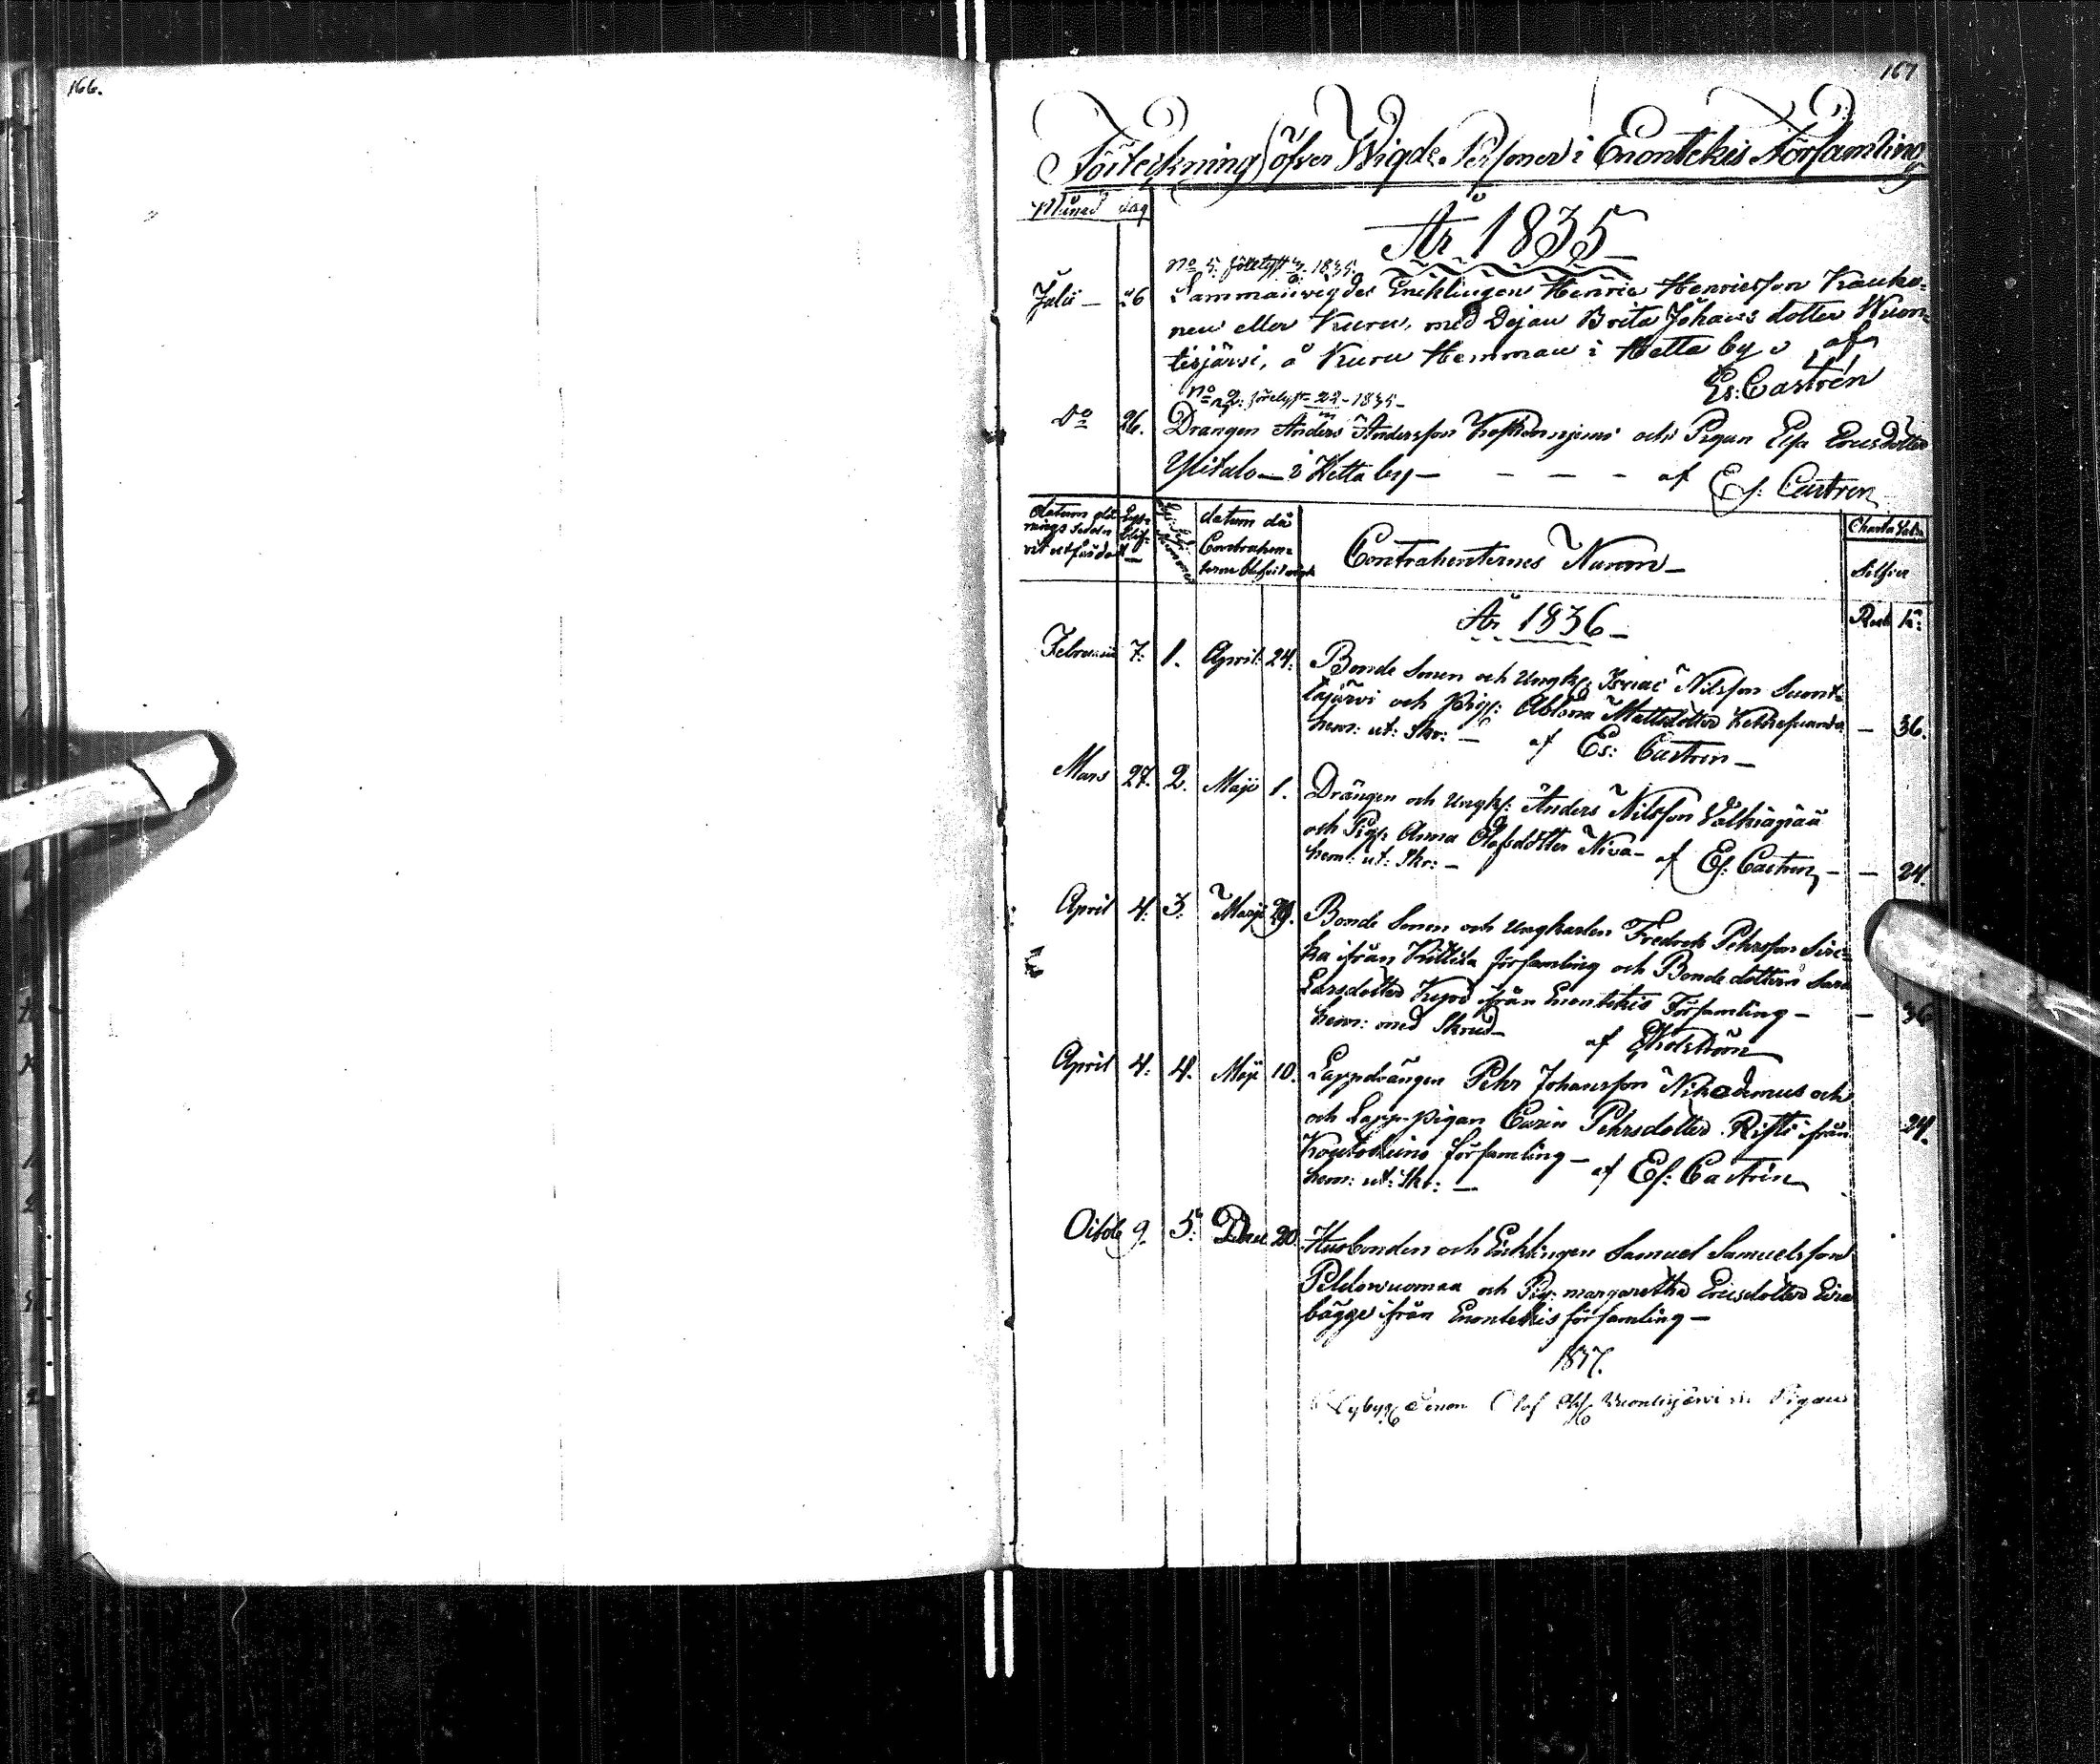 166.
167
Förteckning öfver Wigde Personer i Enontekis Församling
Månad dag
År 1835
No 5. 1835.
Julii — 26 Sammanvigdes Encklingen Henric Henricsson Kauko-
nen eller Kuru, med Dejan Brita Johans dotter Wuon-
tisjärvi, å Kuru Hemman i Hetta by af
Es: Castrén
No 2: 22 - 1835 -
Do 26. Drängen Anders Andersson och Pigan Elsa Ericsdotter
Ylitalo — i Hetta by — — — — af Es: Castren
datum då datum då
Contrahen-
terne blifvit vigde
Contrahenternes Namn —
Charta
Silfver
År 1836 —
Rub k:
Februarii 7. 1. April 24. Bonde Sonen och Ungk: Isaac Nilsson Suont-
tajärvi och Pig: Mattsdotter
hem: ut: Skr: — af Es: Castren — — 36.
Mars 27. 2. Maji 1. Drängen och Ungk: Anders Nilsson Valkiapää
och Pig: Anna Olofsdotter Niva — af Es: Castren — — 24.
hem: ut: Skr: —
April 4. 3. Maji 29. Bonde Sonen och Ungkarlen Fredrik Pehrsson Sirc-
ka ifrån Kittilä församling och Bonde dottern Sara
Larsdotter ifrån Enontekis Församling — — 36
hem: med Skrud —
af
April 4. 4. Maji 10. Lappdrängen Pehr Johansson Nikodemus och
och Lapp-pigan Carin Pehrsdotter Risti ifrån 24.
Koutokeino församling —
hem: ut: Skr: — af Es: Castrén
Octob 9. 5. 20. Husbonden och Encklingen Samuel Samuelsson
Peldowuoma och Pig: margaretha Ericsdotter Eira
bägge ifrån Enontekis församling —
1837.
Nybygg Sonen Olof Wuontisjärvi Pigan